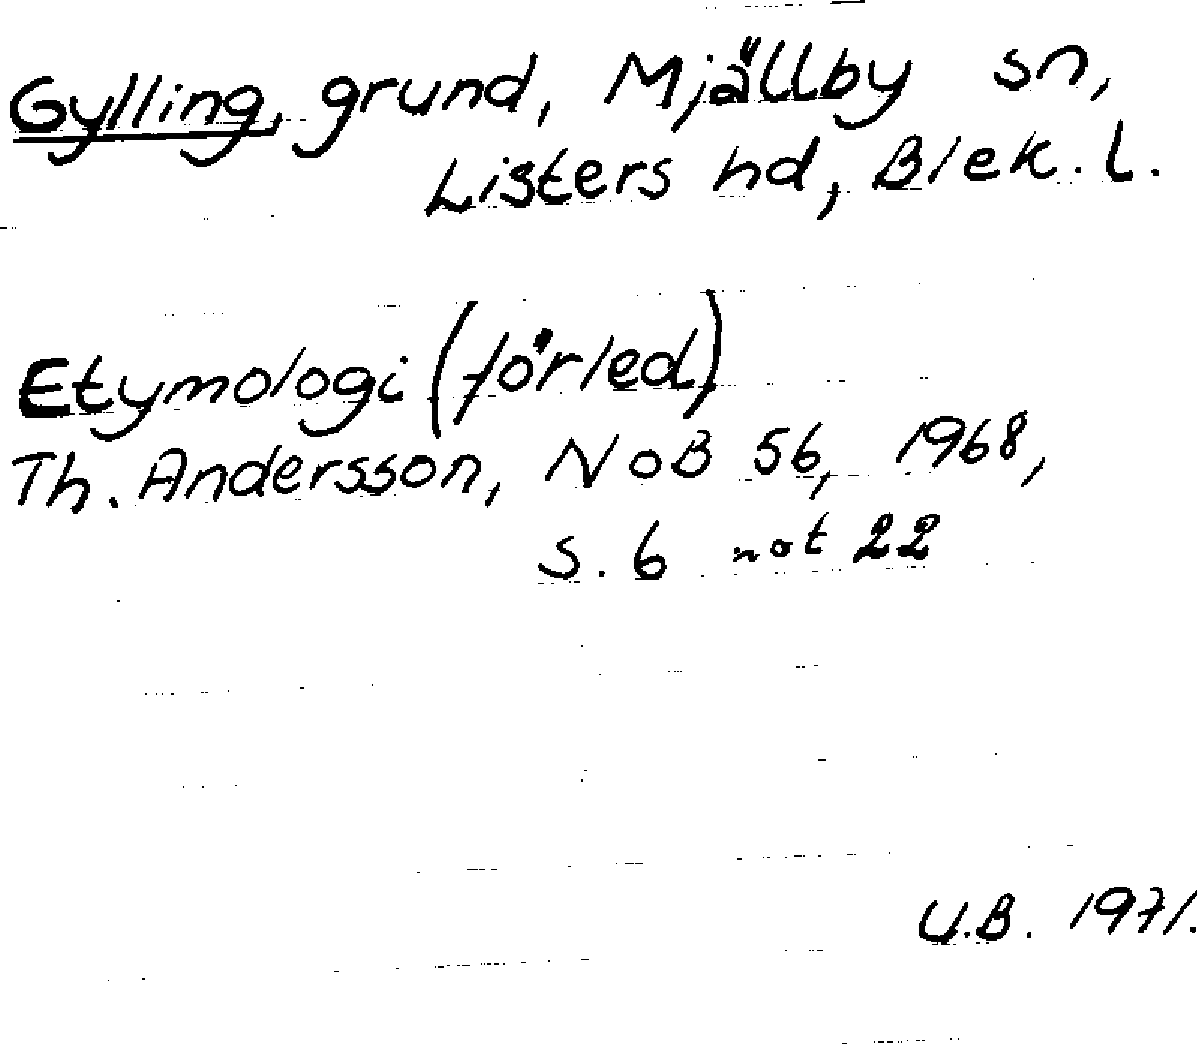 Gylling, grund, Mjällby sn,
Listers hd, Blek. l.
Etymologi (förled)
Th. Andersson, NoB 56, 1968,
s. 6 not 22
U.B. 1971.